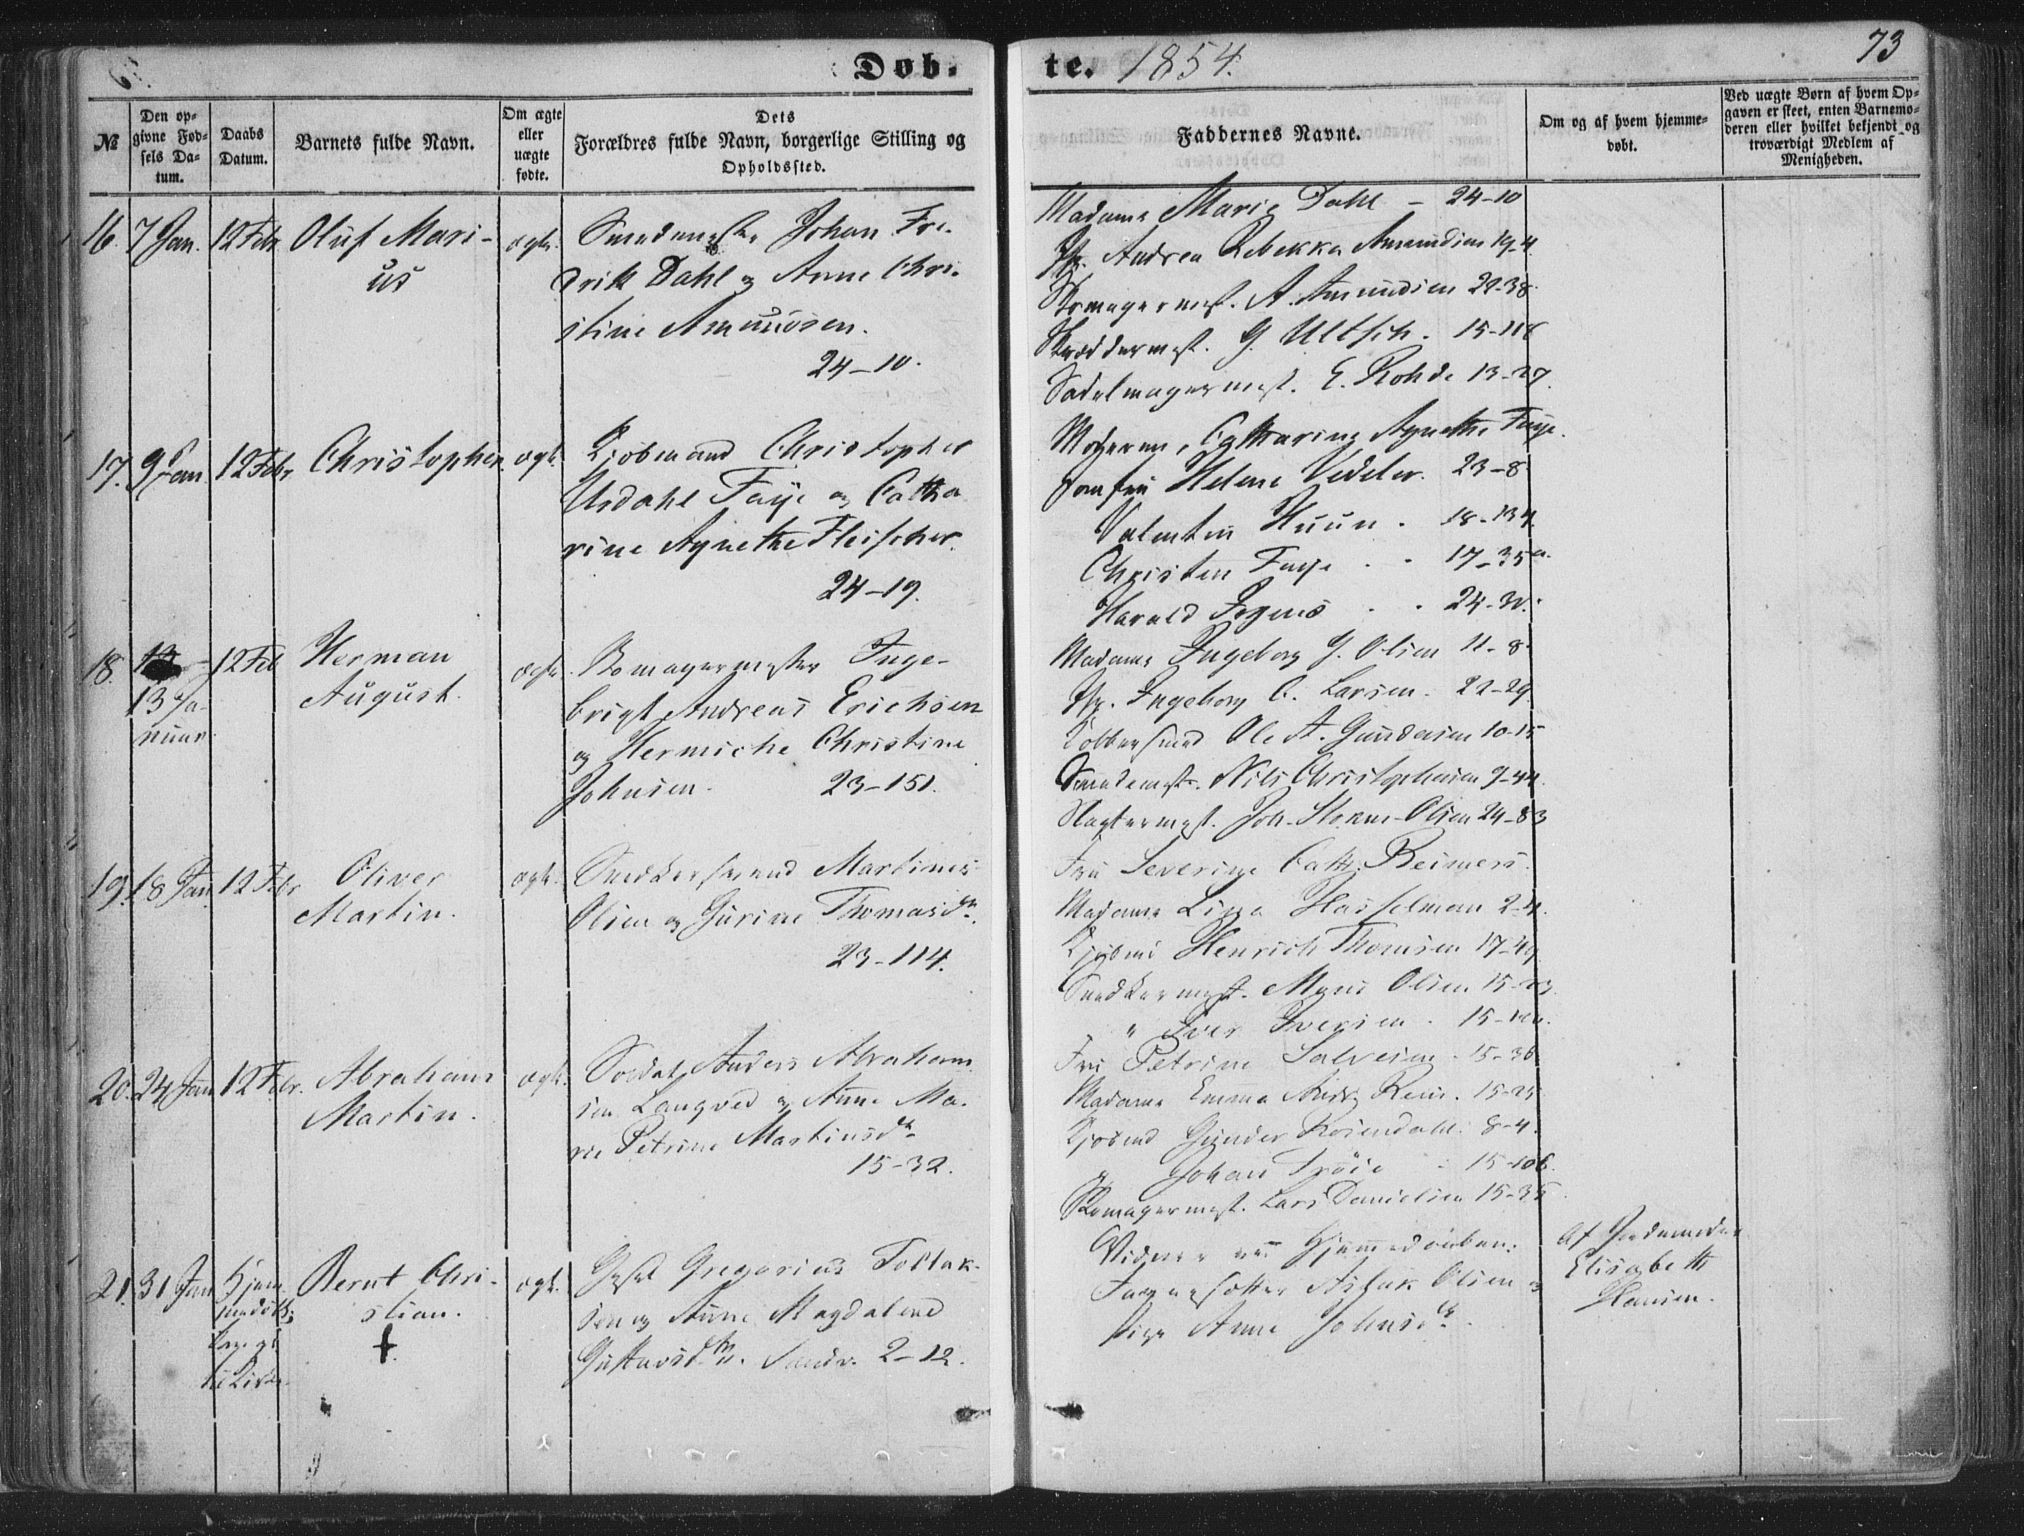 Døb. te. 1854. 73
№
Den op-
givne Fød-
sels Da-
tum.
Daabs
Datum.
Barnets fulde Navn.
Om ægte
eller
uægte
fødte.
Dets
Forældres fulde Navn, borgerlige Stilling og
Opholdssted.
Faddernes Navne.
Om og af hvem hjemme-
døbt.
Ved uægte Børn af hvem Op-
gaven er skeet, enten Barnemo-
deren eller hvilket bekjendt og
troværdigt Medlem af
Menigheden.
16. 7 Jan. 12 Febr Oluf Mari-
us
ægte.
Smedmester Johan Fre-
drik Dahl og Anne Chri-
stine Amundsen.
24-10.
Madame Marie Dahl - 24-10
Pg. Andrea Rebekka Amundsen 19-4
Skomagermest. A. Amundsen 22-38.
Skræddermest. G. Ultsch. 15-116
Sadelmagermest. E. Rohde 13-27.
17. 9 Jan 12 Febr Christopher ægte.
Kjøbmand Christopher
Usdahl Faye og Catha
rine Agnethe Fleischer.
24-19.
Moderen, Catharine Agnethe Faye.
Jomfru Helene Vedeler. 23-8
Valentin Huun. 18-134.
Christen Faye . . 17-35a.
Harald . . 24-30.
18. 13 Ja-
nuar. 12 Feb Herman
August.
ægte.
Skomagermester Inge-
brigt Andreas Erichsen
og Hermiche Christine
Johnsen. 23-151.
Madame Ingeborg G. Olsen 11-8
Pg. Ingeborg C. Larsen. 22-29
Kobbersmed Ole A. Gundersen 10-15
Smedemest. Nils Christophersen 9-44.
Slagtermest. Joh. Olsen 24-83
19. 18 Jan 12 Febr Oliver
Martin.
ægte.
Snedkersvend Martinus
Olsen og Gurine Thomasdtr.
23-114.
Fru Severine Cath. Reimers.
Madame Hasselman 2-4.
Kjøbmd Henrich Thomsen 17-49
Snedkermest. Mons Olsen 15-23.
" Iver Iversen. 15-
20. 24 Jan 12 Febr. Abraham
Martin.
ægte.
Soldat Anders Abraham
sen Langved og Anne Ma-
rie Petrine Martinsdtr
15-32.
Fru Petrine Salvesen. 15-36
Madame Emma Rein. 15-25
Kjøbmd Gunder Rosendahl. 8-4.
Johan Trøie - 15-106.
Skomagermest. Lars Danielsen 15-35.
21. 31 Jan Hjem-
medøbt
Bernt Chri-
stian.
†.
ægte.
Gregorius Tollak-
sen og Anne Magdalene
Gustavsdtr. 2-12.
Vidner ved Hjemmedaaben:
Aslak Olsen og
Pige Anne Johnsdtr.
Af Jordemoder
Elisabeth
Hansen.